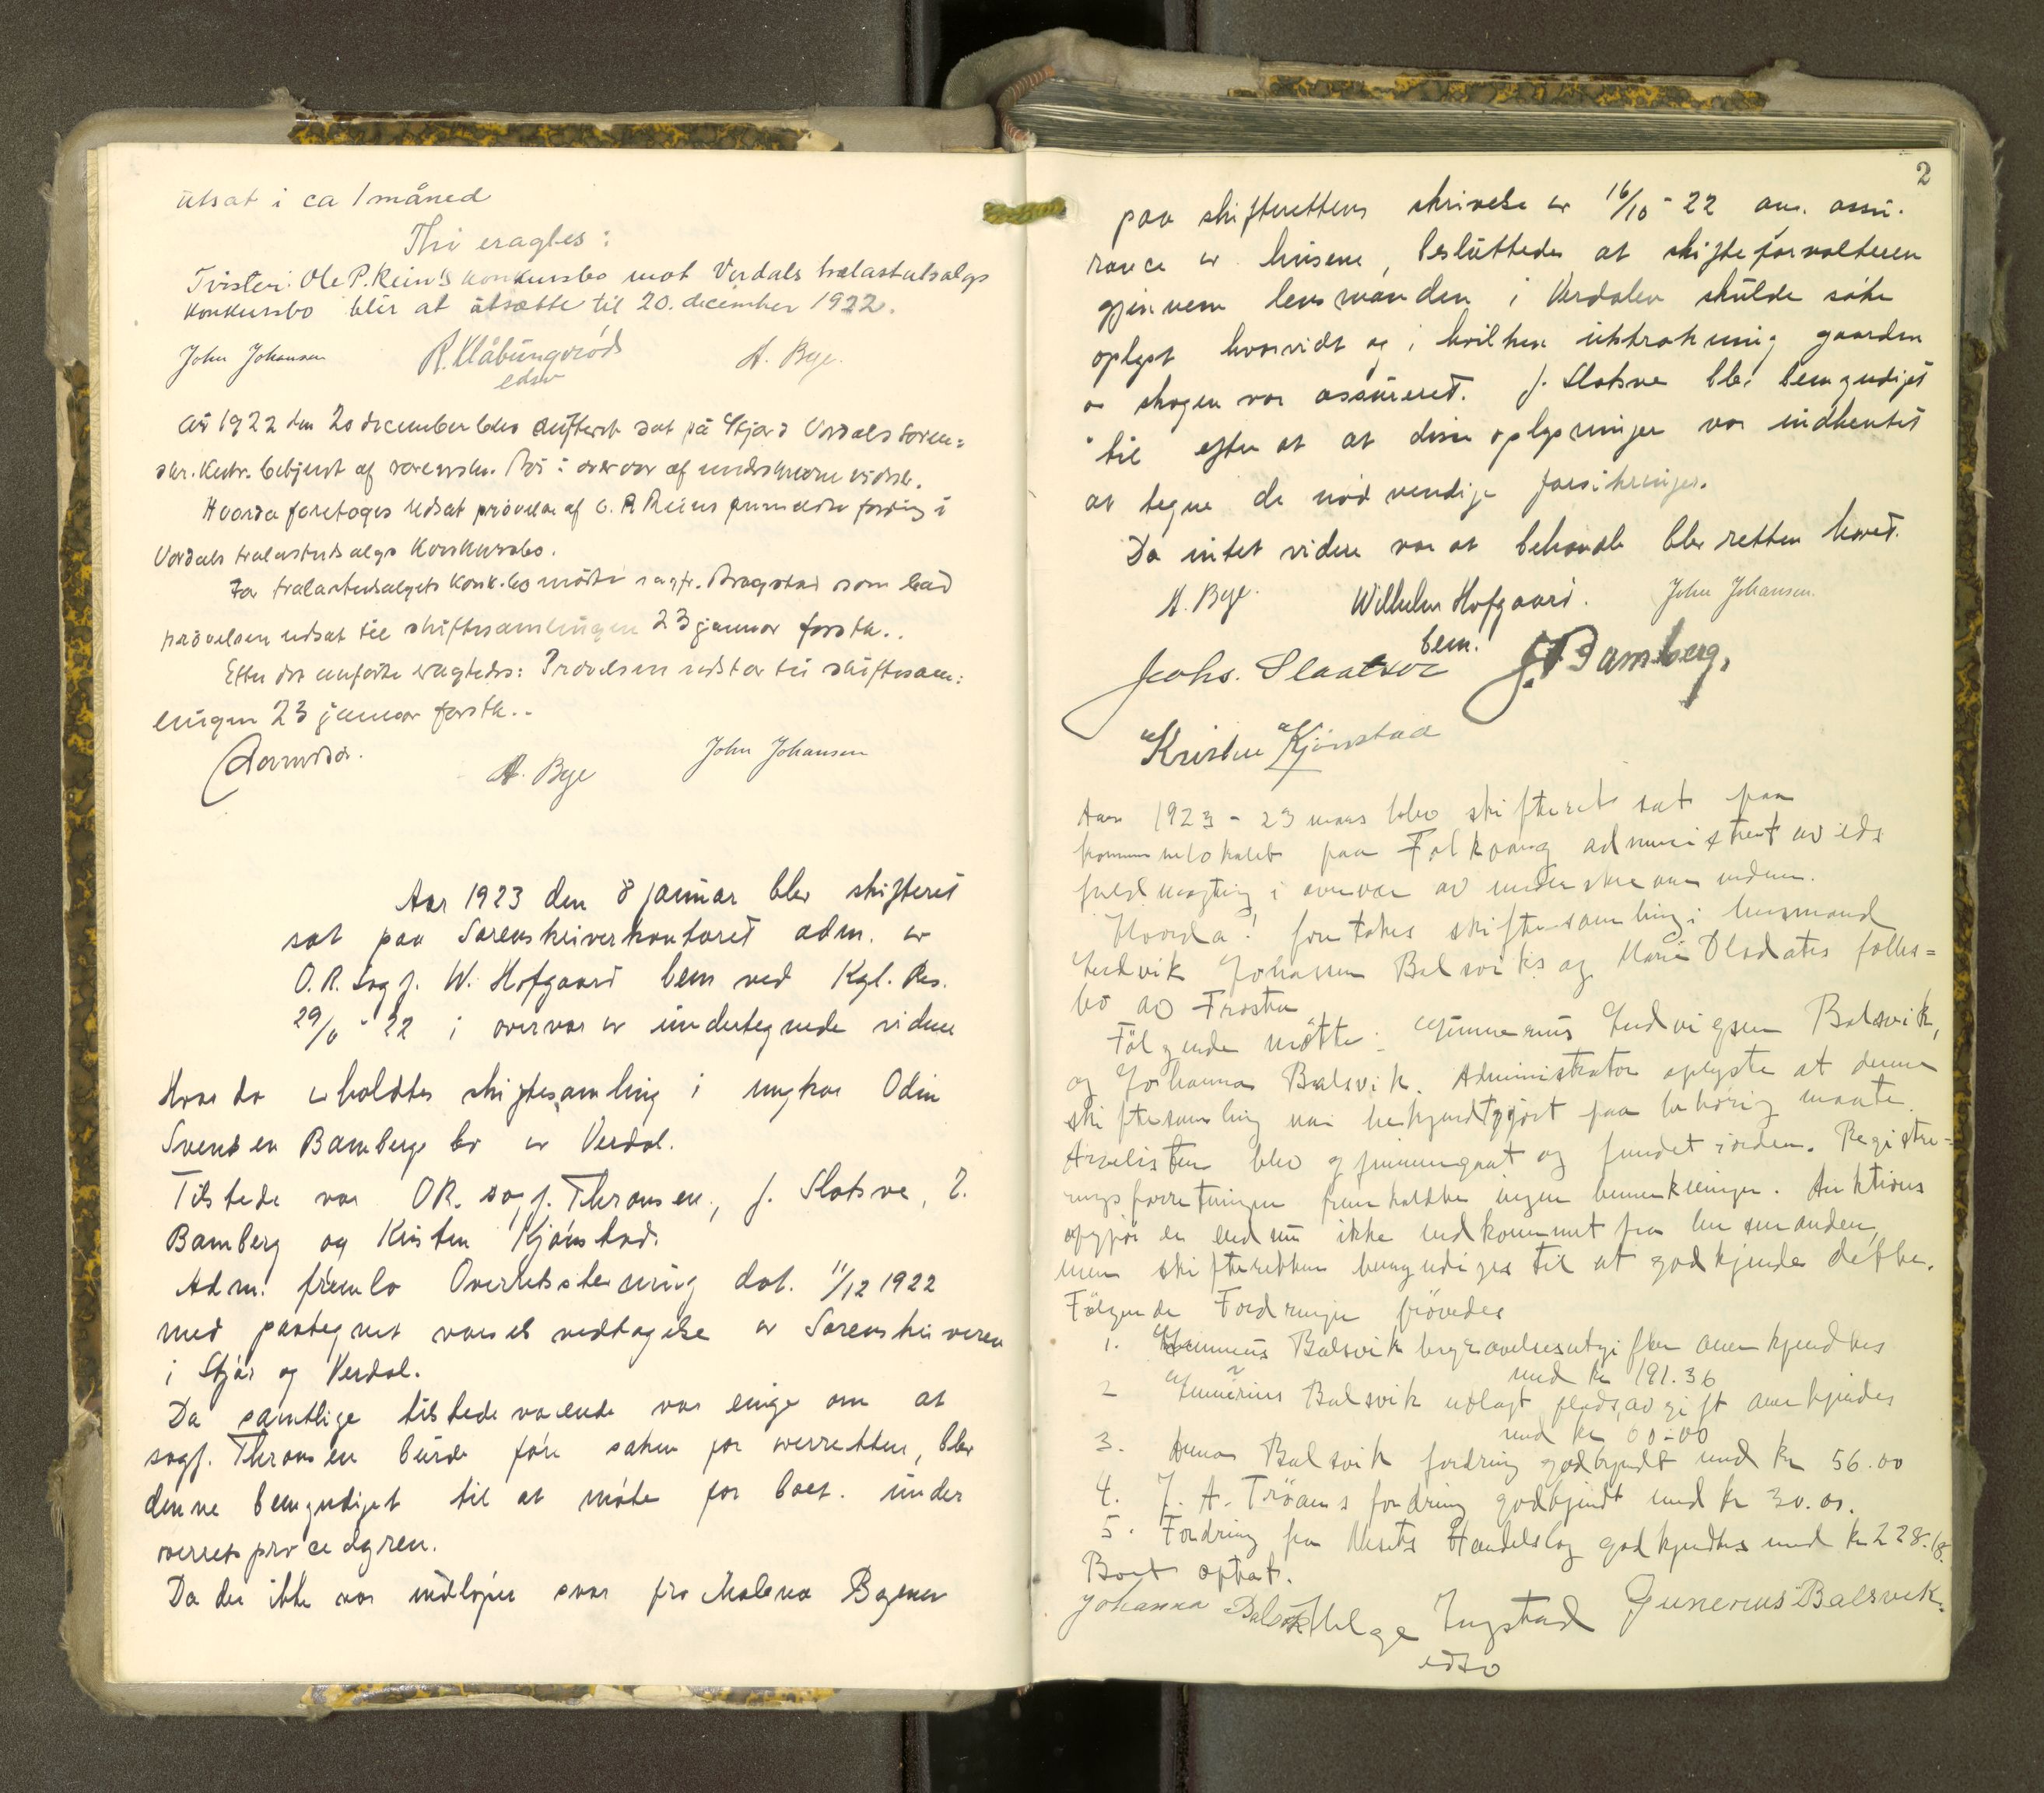 utsat i ca 1 måned
Thi eragtes:
Tvisten: Ole P. Rein's konkursbo mot Verdals trælastutsalgs
konkursbo blir at utsætte til 20. december 1922.
John Johansen R. Klåbungröd A. Bye.
edsv
År 1922 den 20 december blev skifteret sat på Stjør & Verdals soren=
skr. kntr. betjent af sorenskr. i overvær af underskrevne vidner.
Hvorda foretoges udsat prøvelse af O. P. Reins anmeldte fordring i
Verdals trælastudsalgs konkursbo.
For trælastudsalgets konk.bo mødte sagfr. Bragstad som bad
prøvelsen udsat til skiftesamlingen 23 januar førstk..
Efter det anførte eragtedes: Prøvelsen udstår til skiftesam=
lingen 23 januar førstk..
A. Bye John Johansen
Aar 1923 den 8 januar blev skifteret
sat paa Sorenskriverkontoret adm. av
O.R. sagf. W. Hofgaard bem ved Kgl. Res.
29/ - 22 i overvær av undertegnede vidner
Hvorda avholdtes skiftesamling i ungkar Odin
Svendsen Bambergs bo av Verdal.
Tilstede var OR. sagf. Thronsen, J. Slotsve, J.
Bamberg og Kristen Kjønstad.
Adm. fremla Overretsstevning dat. 11/12 1922
med paategnet varsels vedtagelse av Sorenskriveren
i Stjør og Verdal.
Da samtlige tilstedeværende var enige om at
sagf. Thronsen burde føre saken for overretten, blev
denne bemyndiget til at møte for boet under
overretsproceduren.
Da der ikke var indløpet svar fra Malena
2
paa skifterettens skrivelse av 16/10 - 22 ang. assu-
rance av husene, besluttedes at skifteforvalteren
gjennem lensmanden i Verdalen skulde søke
oplyst hvorvidt og i hvilken utstrækning gaarden
og skogen var assureret. J. Slotsve blev bemyndiget
til efter at at disse oplysninger var indhentet
at tegne de nødvendige forsikringer.
Da intet videre var at behandle blev retten hævet.
A. Bye. Wilhelm Hofgaard. John Johansen.
bem.
Johs. Slaatsve J. Bamberg,
Kristen Kjönstad
Aar 1923 - 23 mars blev skifteret sat paa
kommunelokalet paa Folkvang administreret av eds
fuldmægtig i overvær av underskrevne vidner.
Hvorda: foretokes skiftesamling i husmand
Ludvik Johansen Balsviks og Marie Olsdatters fælles=
bo av Frosta
Følgende møtte: Gunnerius Ludvigsen Balsvik,
og Johanna Balsvik. Administrator oplyste at denne
skiftesamling var bekjendtgjort paa behørig maate.
Arvelisten blev gjennemgaat og fundet iorden. Registre=
ringsforretningen fremkaldte ingen bemerkninger. Auktions
opgjør er endnu ikke indkommet fra lensmanden,
men skifteretten bemyndiges til at godkjende dette.
Følgende Fordringer prøvedes
1. Gunnerius Balsvik begravelsesutgifter anerkjendtes
med kr 191.36
2 Gunnerius Balsvik utlagt pladsavgift anerkjendes
med kr 60-00
3. Anna Balsvik fordring godkjendt med kr 56.00
4. J. A. Tröans fordring godkjendt med kr 30.00.
5. Fordring fra Nesets Handelslag godkjendtes med kr 228.18.
Boet optat.
Johanna Balsvik Helge Ingstad Gunerius Balsvik.
edsv